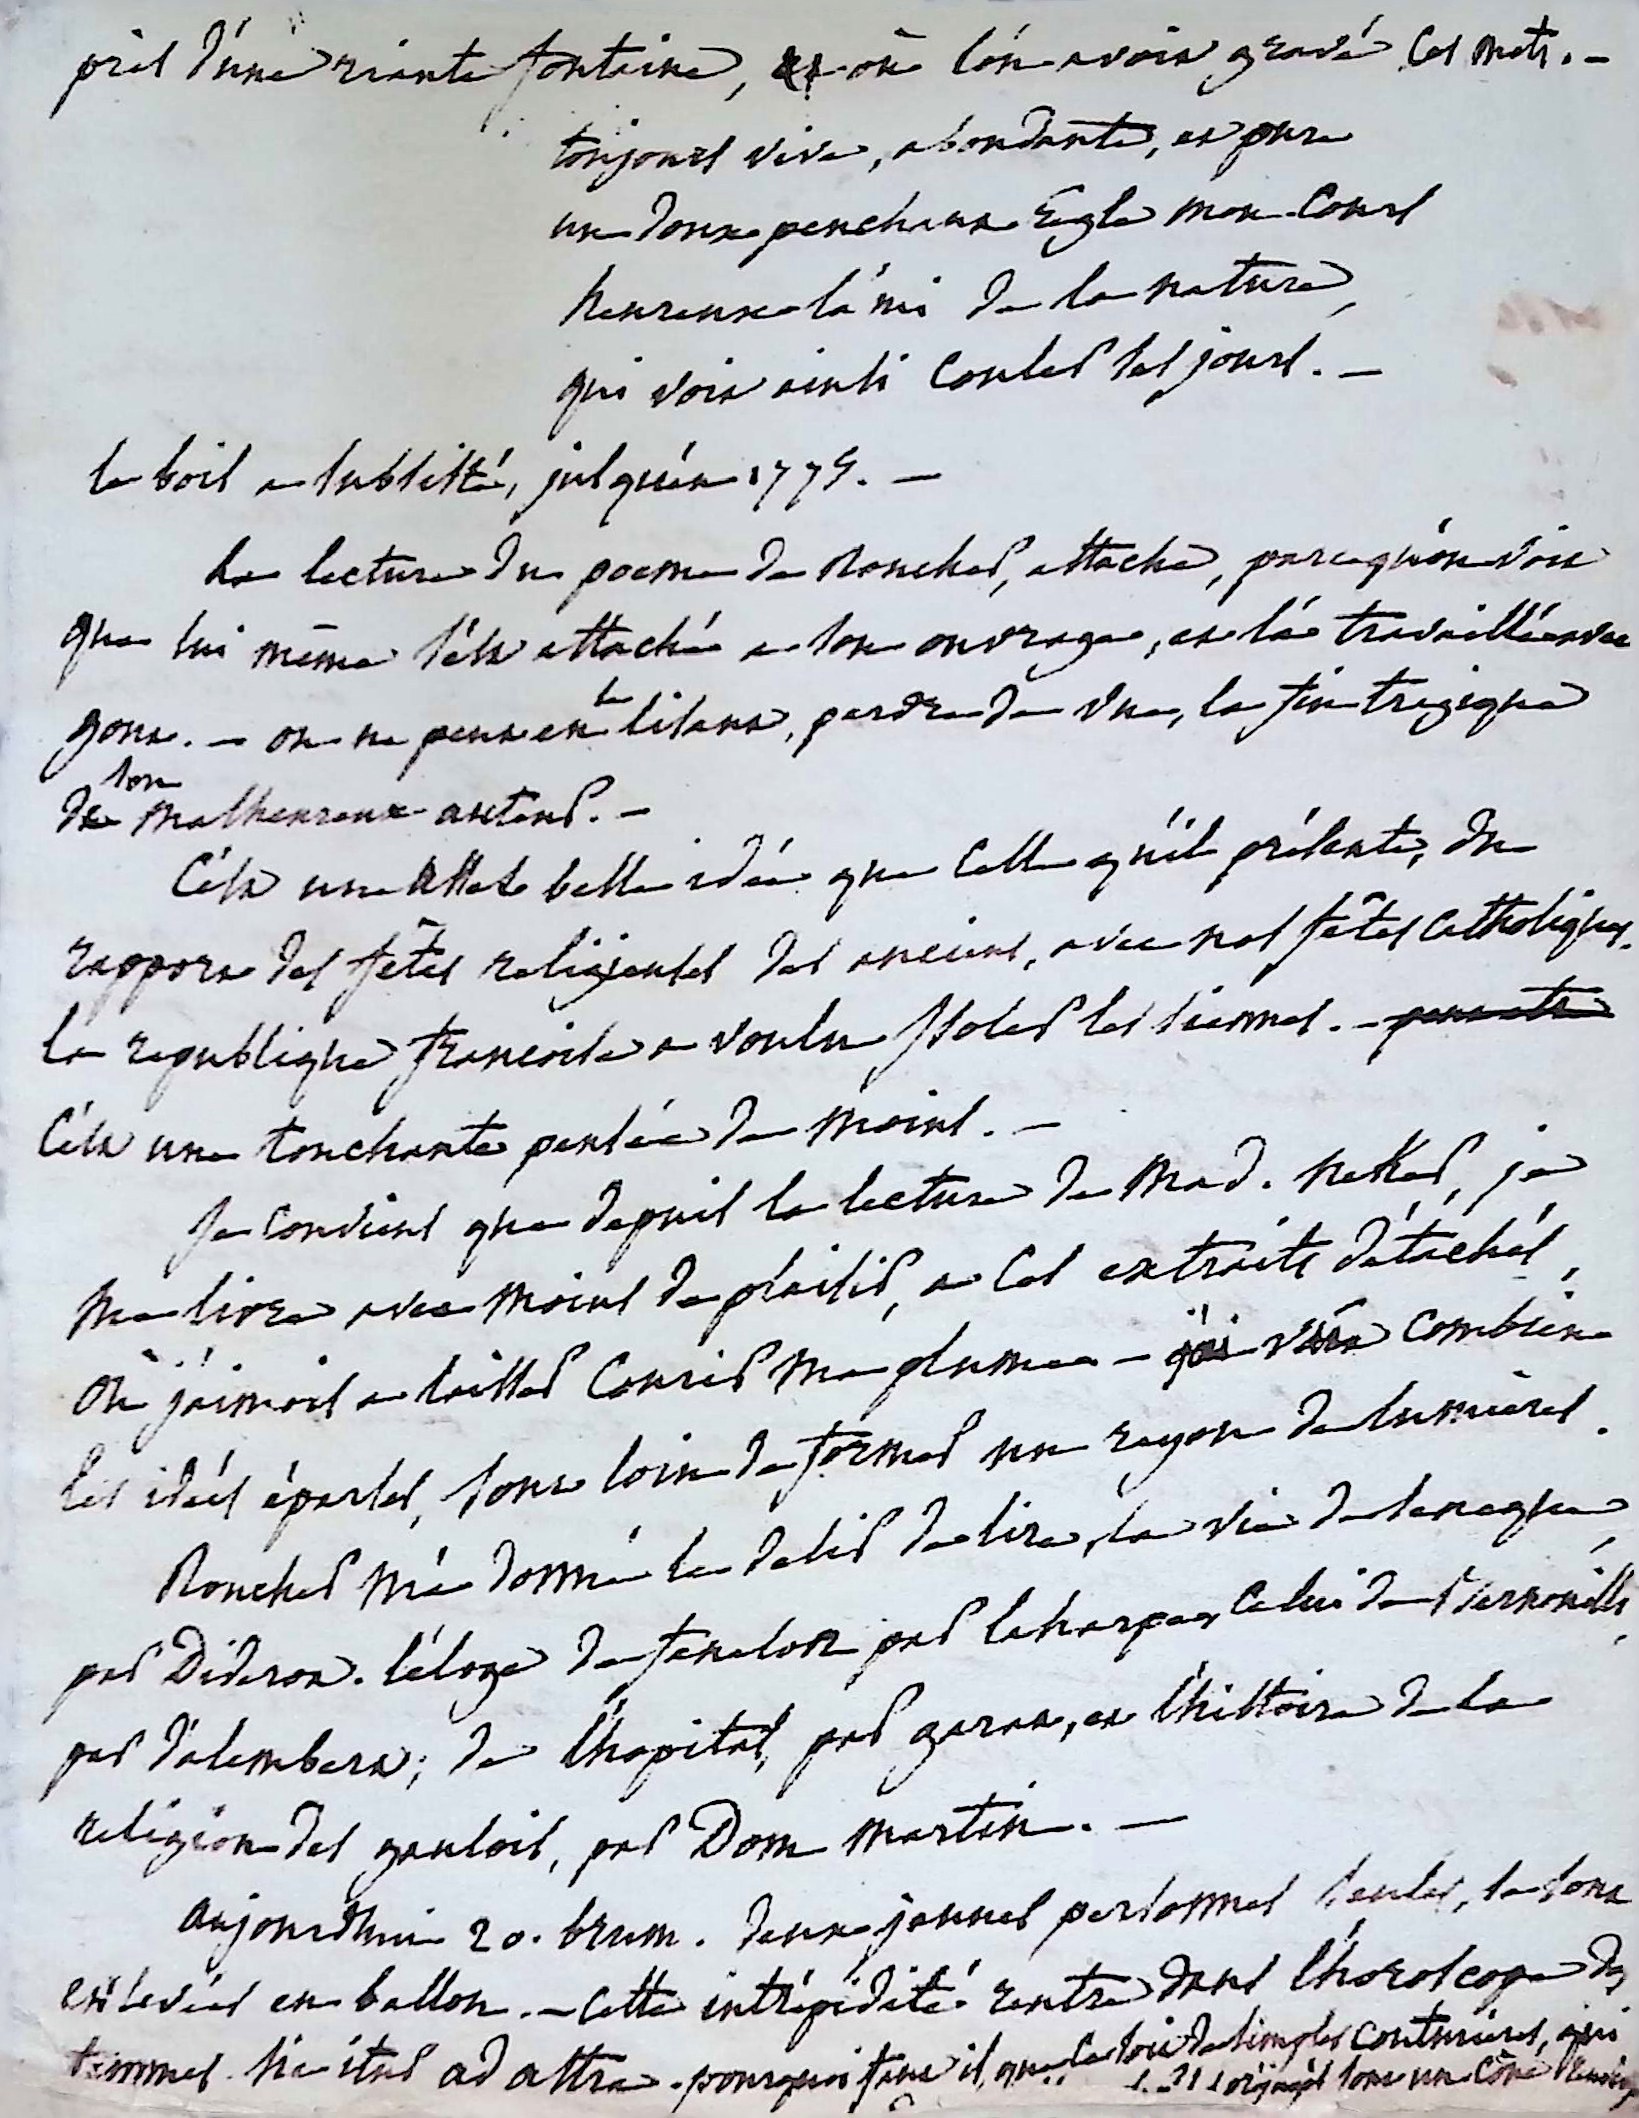 près d'une riante fontaine, et où l'on avoit gravé ces mots. -
toujours vive, abondante, et pure
un doux penchant règle mon cours
heureux l'ami de la nature,
qui voit ainsi couler ses jours. -
le bois a subsisté, jusqu'en 1775. -
La lecture du poeme de Roucher, attache, parcequ'on voit
que lui même s'est attaché a son ouvrage, et l'a travaillé avec
gout. - on ne peut en le lisant, perdre de vue, la fin tragique
de son malheureux auteur. -
C'est une assez belle idée que celle qu'il présente, du
rapport des fêtes religieuses des anciens, avec nos fêtes catholiques.
la republique francoise a voulu isoler les siennes. - peut etre
C'est une touchante pensée du moins. -
Je conviens que depuis la lecture de Mad. Neker, je
me livre avec moins de plaisir, a ces extraits détachés,
où j'aimois a laisser courir ma plume - j'ai vu combien
les idées éparses, sont loin de former un rayon de lumières.
Roucher m'a donné le desir de lire, la vie de seneque,
par Diderot. l'éloge de fenelon par laharpe, celui de Bernouilli,
par d'alembert; de l'hopital, par garat, et l'histoire de la
religion des gaulois, par Dom martin. -
aujourdhui 20. brum. deux jeunes personnes seules, se sont
enlevées en ballon. - cette intrépidité rentre dans l'horoscope des
femmes. sic itur ad astra. pourquoi faut il que ce soit de simples couturières, qui
sont un cône